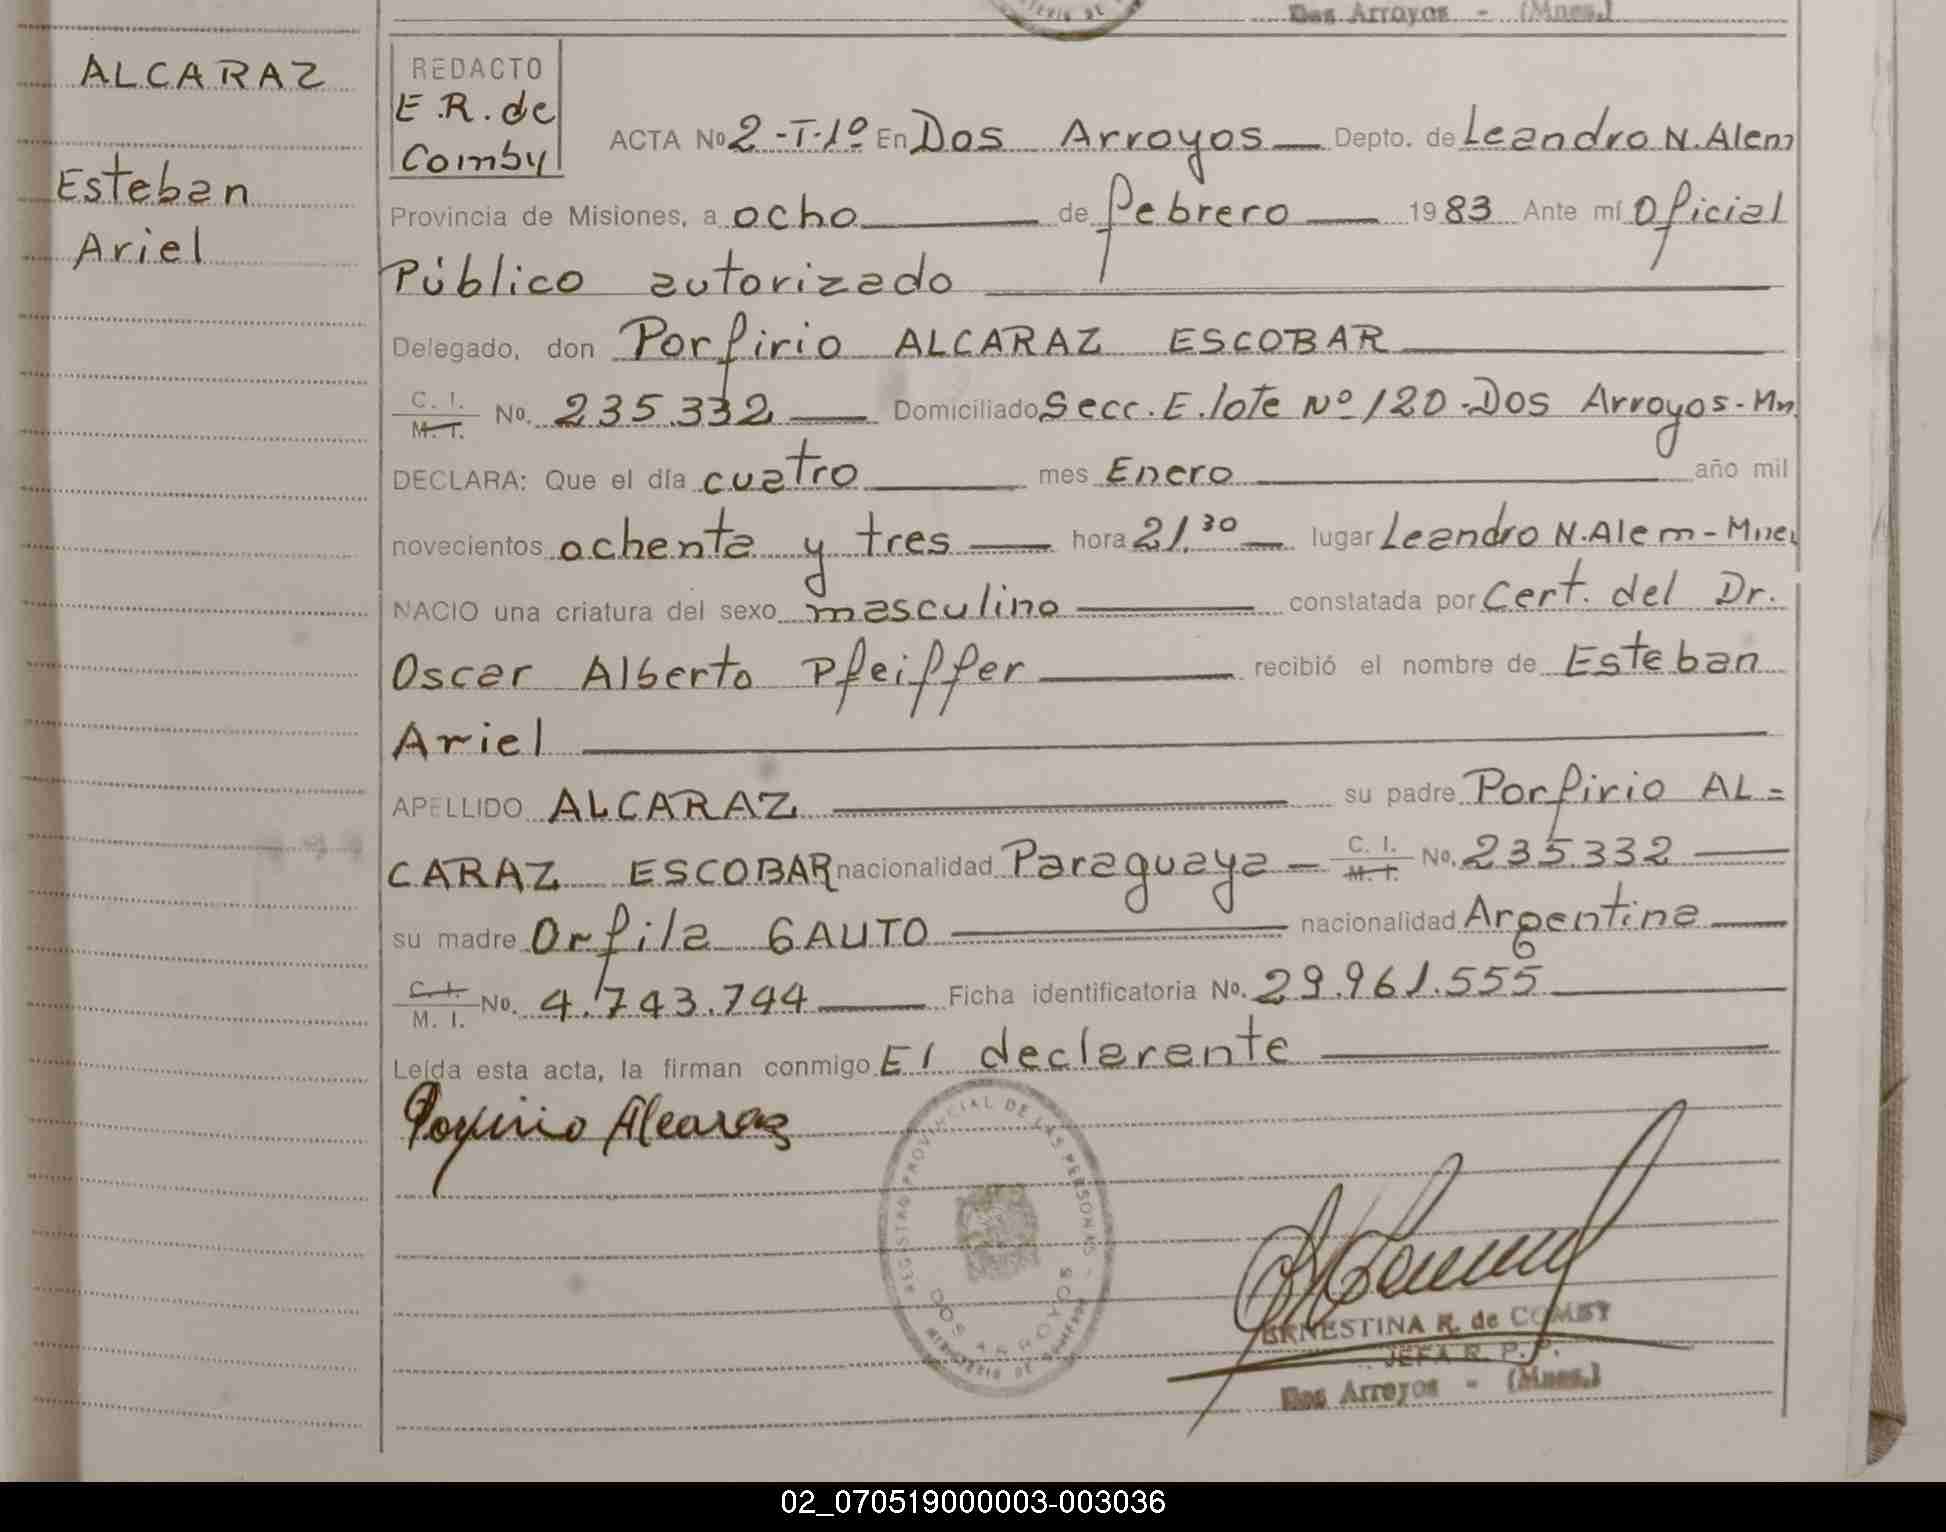 Dos Arroyos - (Mnes.)
ALCARAZ
Esteban
Ariel
REDACTO
E.R. de
Comby
ACTA No 2-T-1º En Dos Arroyos Depto. de Leandro N. Alem
Provincia de Misiones, a ocho de febrero 1983 Ante mí Oficial
Público autorizado
Delegado, don Porfirio ALCARAZ ESCOBAR
C. I. M. I. No. 235.332 Domiciliado Secc. E. lote Nº 120 - Dos Arroyos - Mn.
DECLARA: Que el día cuatro mes Enero año mil
novecientos ochenta y tres hora 21.30 lugar Leandro N. Alem - Mnes.
NACIO una criatura del sexo masculino constatada por Cert. del Dr.
Oscar Alberto Pfeiffer recibió el nombre de Esteban
Ariel
APELLIDO ALCARAZ su padre Porfirio AL=
CARAZ ESCOBAR nacionalidad Paraguaya C. I. M. I. No. 235.332
su madre Orfila GAUTO nacionalidad Argentina
C. I. M. I. No. 4.743.744 Ficha identificatoria No. 29.961.555
6
Leída esta acta, la firman conmigo El declarante
Porfirio Alcaraz
REGISTRO PROVINCIAL DE LAS PERSONAS
DOS ARROYOS
MINISTERIO DE GOBIERNO
ERNESTINA R. de COMBY
JEFA R. P. P.
Dos Arroyos - (Mnes.)
02_070519000003-003036